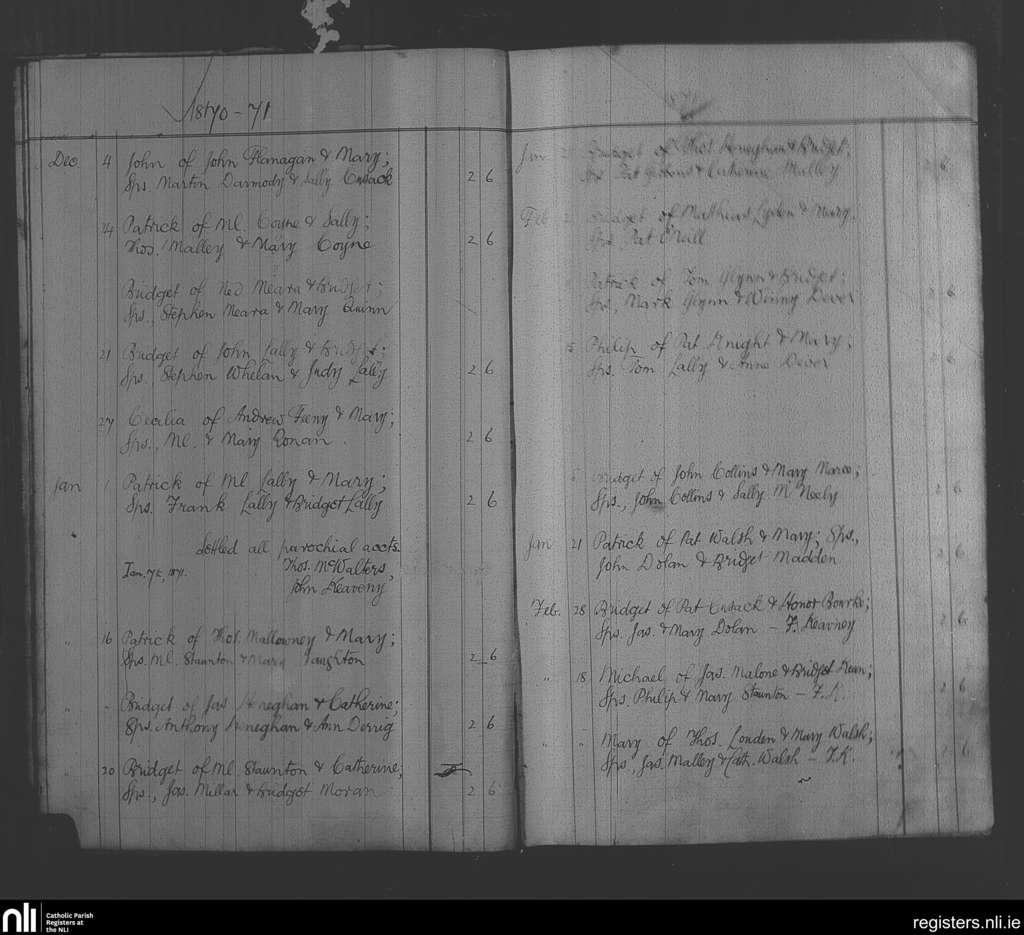 1870-71
Dec 4 John of John Flanagan & Mary;
Sps. Martin Darmody & Sally Cusack 2 6
14 Patrick of Ml. Coyne & Sally;
Thos. Malley & Mary Coyne 2 6
Bridget of Ned Meara & Bridget;
Sps., Stephen Meara & Mary Quinn
21 Bridget of John Lally & Bridget;
Sps. Stephen Whelan & Judy Lally 2 6
27 Cecilia of Andrew Feeny & Mary;
Sps., Ml. & Mary Ronan. 2 6
Jan Patrick of Ml Lally & Mary;
Sps. Frank Lally & Bridget Lally 2 6
Settled all parochial accts.
Jan. 7th, 1871. Thos. McWalters,
John Keaveny
" 16 Patrick of Thos. Mallowney & Mary;
Sps. Ml. Staunton & Mary Naughton 2 6
" - Bridget of Jas Heneghan & Catherine;
Sps. Anthony Heneghan & Ann Derrig 2 6
20 Bridget of Ml. Staunton & Catherine,
Sps., Jas. Millar & Bridget Moran 2 6
1871
Jan Bridget of Thos. Heneghan & Bridget;
Sps. Pat & Catherine Malley 2 6
Feb Bridget of Mathias Lyden & Mary.
Sps. Pat O'Neill
Patrick of Tom Glynn & Bridget;
Sps, Mark Glynn & Winny Dever 2 6
15 Philip of Pat Knight & Mary;
Sps. Tom Lally & Anne Dever 2 6
Bridget of John Collins & Mary
Sps., John Collins & Sally McNeely 2 6
Jan 21 Patrick of Pat Walsh & Mary; Sps.,
John Dolan & Bridget Madden. 2 6
Feb. 28 Bridget of Pat Cusack & Honor Bourke;
Sps. Jas. & Mary Dolan - F. Kearney 2 6
" 18 Michael of Jas. Malone & Bridget Kean;
Sps. Philip & Mary Staunton - F.K. 2 6
" " Mary of Thos. Louden & Mary Walsh;
Sps, Jas. Malley & Cath. Walsh - F.K. 2 6
nli Catholic Parish
Registers at
the NLI
registers.nli.ie